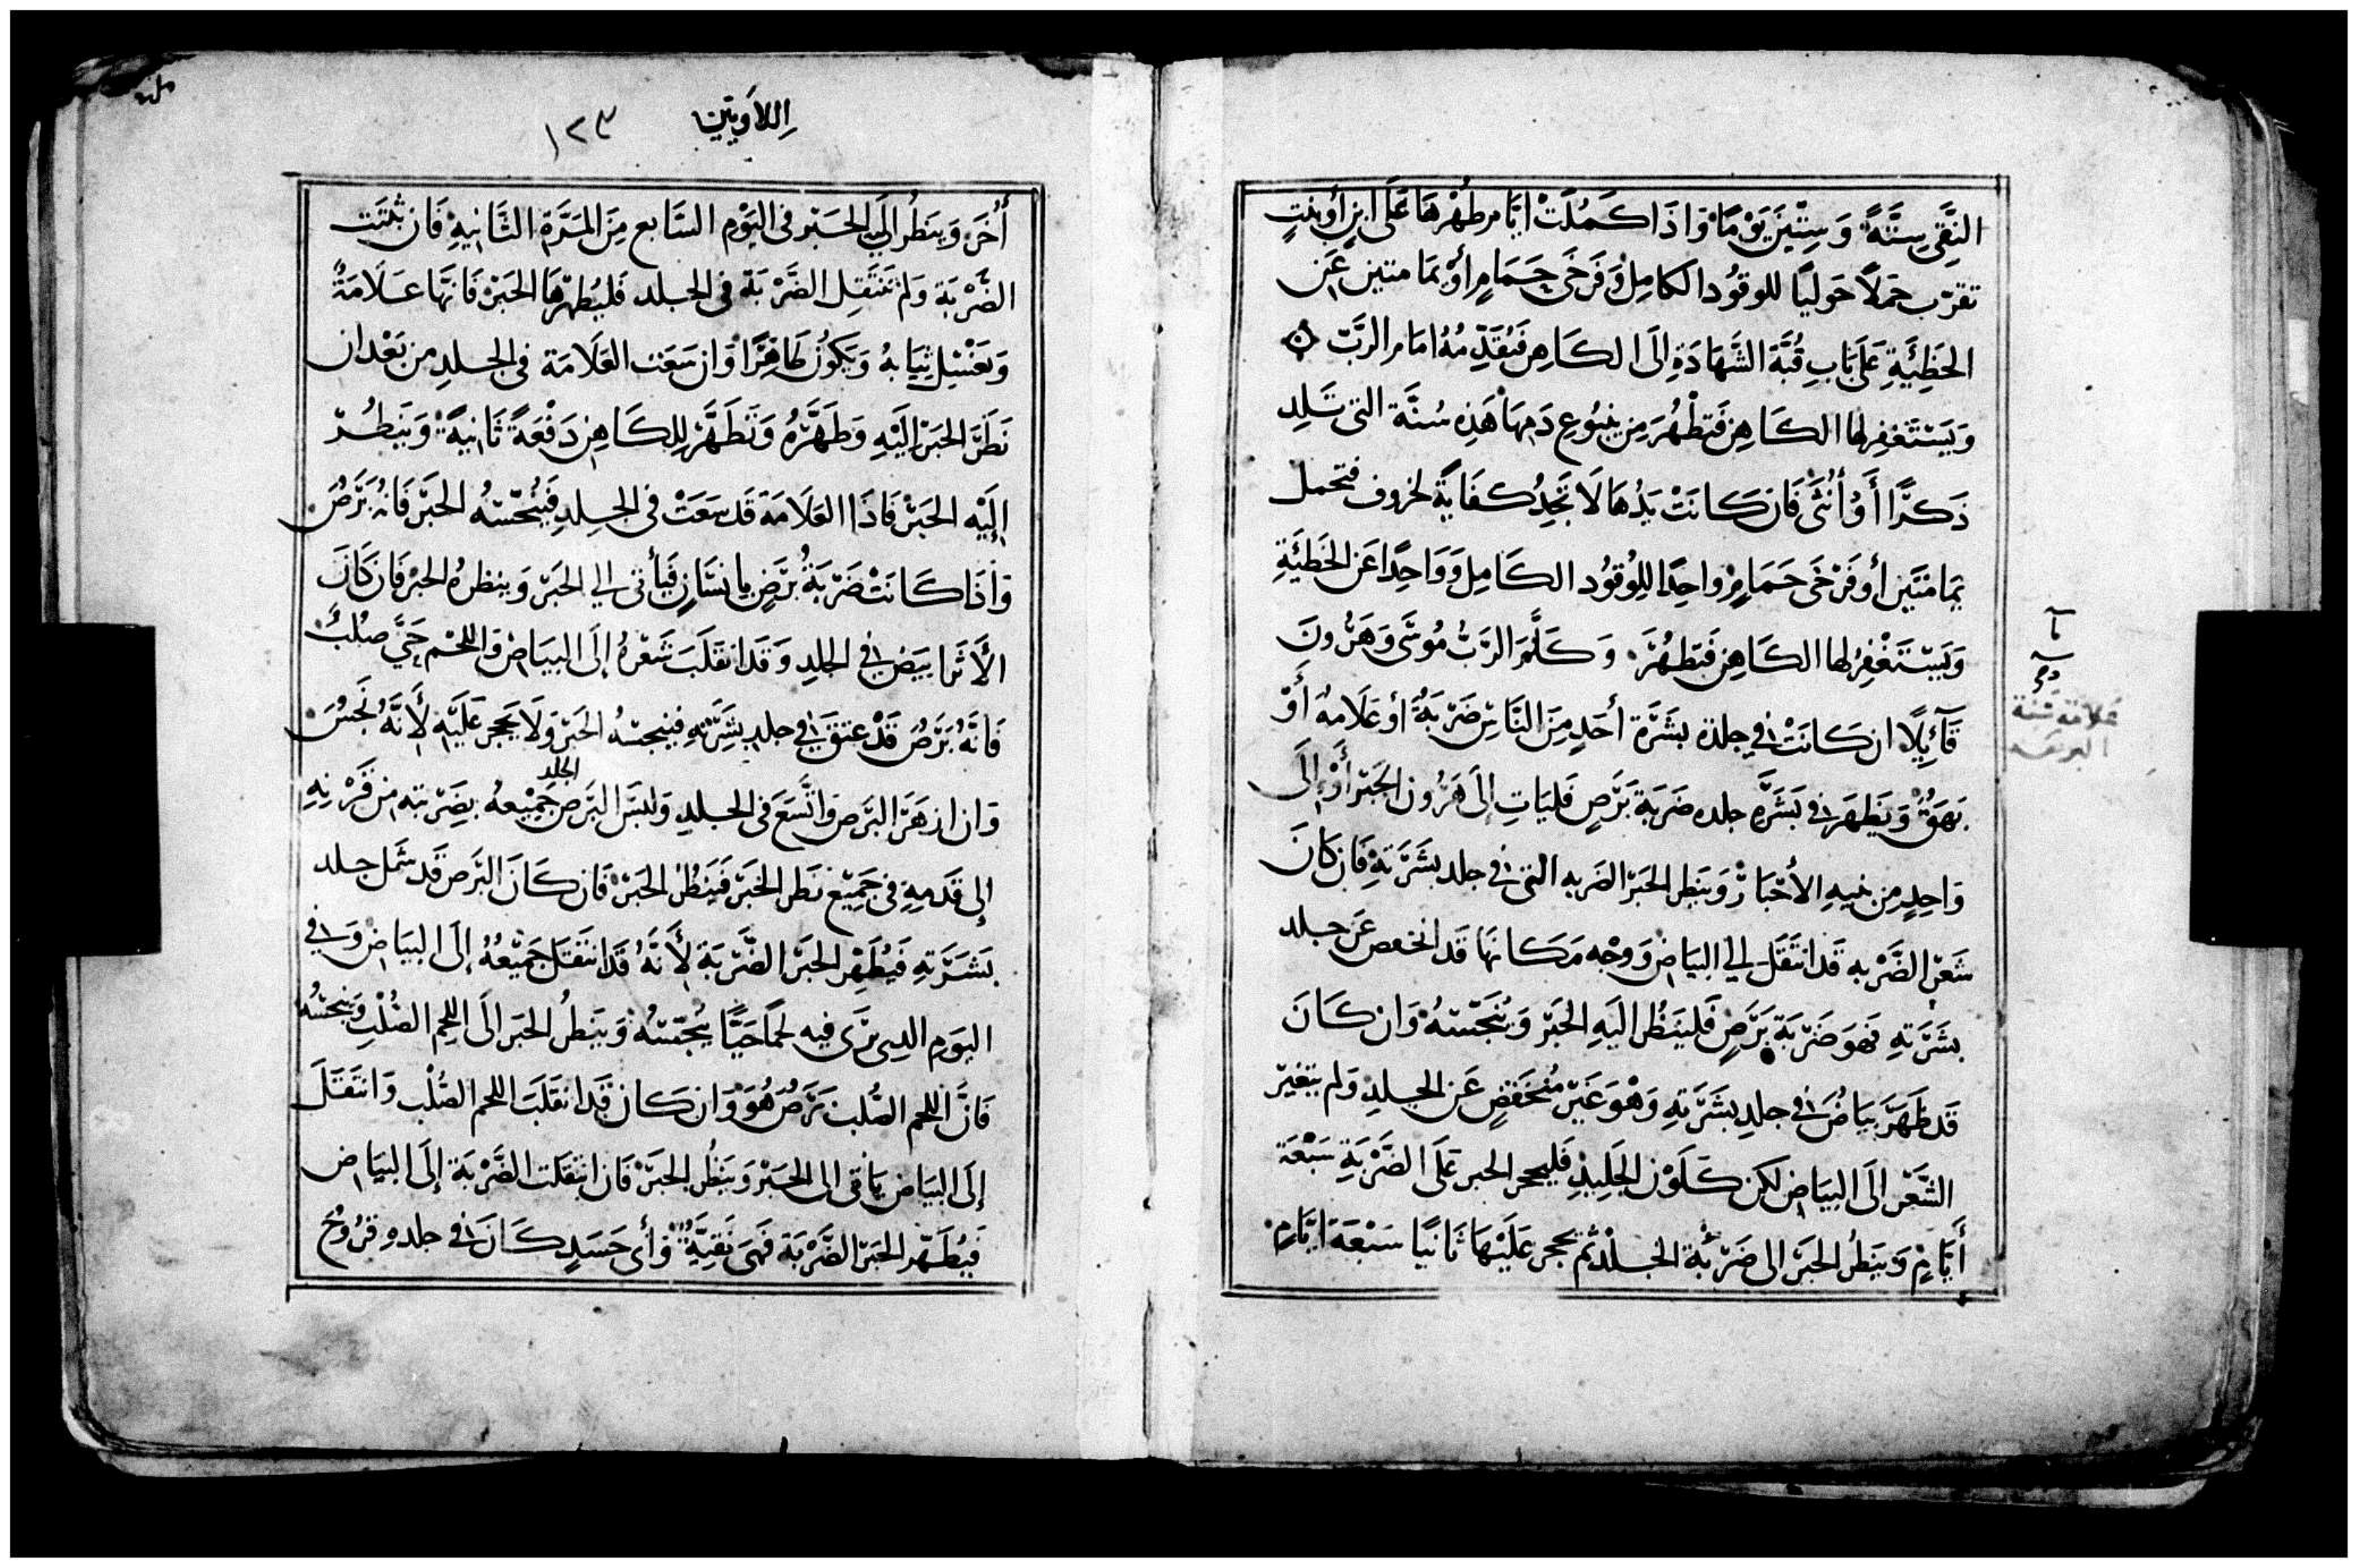 النِّقَى سِتَّةً وَسِتِّينَ يَوْمًا وَاذَا كَمُلَتْ ايَّام طُهْرِهَا عَلَى ابنٍ أوبنتٍ
تقرّب حَمَلاً حَوليًا للوقُود الكامِل وَفَرخَى حَمَامٍ أوْ يمَامتين عَن
الخَطِيَّةِ عَلَى بَابِ قُبَّة الشَّهَادَةِ إلَى الكَاهِن فَيُقَدِّمُهُ امَام الرَّبّ
وَيَسْتَغفِر لها الكَاهِن فَتطْهُرَ مِن ينبُوع دَمِهَا هَذِه سُنَّة التى تَلِد
ذَكرًا أَوْ أُنثَى فَان كَانَتْ يَدُهَا لَا تَجِدُ كفَايَةً لخروف فتحمل
يَمَامَتَين أو فَرْخَى حَمَامٍ واحِدًا للوُقوُد الكَامِل وَوَاحِدًا عَن الخَطِيَّةِ
وَيَسْتَغْفِرُ لها الكَاهِن فَتطهُرَ وَكَلَّمَ الرَبُّ مُوسَى وَهَرُونَ
قَآئِلًا ان كَانَتْ فِي جلدة بشَرَة أحَدٍ مِنَ النَّاسِ ضَرْبَةٌ أو عَلَامهٌ أوْ
بَهَقٌ وَيَظهَر فى بَشَرَة جلده ضَرَبَة بَرَصٍ فَليَاتِ إلَى هَرُون الحَبْر أَوْ إلَى
وَاحِدٍ مِن بنيهِ الأحْبَارْ وَينظر الحَبْر الضَربه التى فى جلد بشَرَتِهِ فَان كانَ
شَعْر الضَّرْبه قَد انتَقَلَ الي البيَاض وَوجْه مَكَانهَا قَد انخفص عَن جلد
بشَرَتهِ فَهوَ ضَرْبَة بَرَصٍ فَلينظُر اليَهِ الحَبْر وَيُنجَّسهُ وَان كَانَ
قَد ظَهَرَ بيَاضٌ فى جلدِ بشَرَتِهِ وَهْوَ غَيْر مُنخَفضٍ عَن الجلدِ وَلم يتغيّر
الشَّعْر الَى البيَاض لكن كَلَوْن الجَلِيدِ فليحجر الحبر عَلَى الضَّرْبَةِ سَبْعَة
أَيَّامٍ وَيَنظُر الحَبَر الى ضَرْبَة الجلد ثم يحجر عَلَيْهَا ثَانيًا سَبْعَة ايَّامٍ
علامة سنة
البرص
اللاَويّين ١٢٣
أُخَر وَينظُر اليهِ الحَبْر فى اليَوْم السَّابع مِنَ المَرَّة الثَّانِيةِ فَان ثبتَت
الضَّرْبَة وَلمْ تَنتَقِل الضَّرْبَة فى الجلد فَليُطهِّرهَا الحَبْر فَانهَّا عَلَامَةٌ
وَيَغْسِل ثِيَابهُ وَيَكوُن طَاهِرًا وَان سَعَت العَلَامَة فى الجلدِ من بَعْد ان
نَظَرَ الحَبْر اليَهِ وَطَهَّرَهُ وَتَطَهَّرَ لِلكَاهِن دَفْعَةً ثَانِيةً وَيَنظُر
إلَيْهِ الحَبْر فَاذَا العَلَامَة قَد سَعَتْ فى الجلدِ فَيُنجّسّهُ الحَبْر فَانهُ بَرَصٌ
وَاذَا كَانَتْ ضَرْبَةُ بَرَصٍ بانسَانٍ فَيأتى الي الحَبْر وَينظرهُ الحبْر فَان كَانَ
الأَثَر ابيَض فى الجلدِ وَقَد انقَلَبَ شَعْرهُ إلَى البيَاض وَاللحْم حَيّ صُلبٌ
فَانَّهُ بَرَصٌ قَدْ عتقَ فى جلدِ بشَرَتِهِ فينجسهُ الحَبْر وَلَا يَحجر عَلَيْهِ لأَنَّهُ نَجسٌ
وَان ازهَرَ البَرَص وَاتَّسَعَ فى الجلدِ وَلبسَ البَرَص الجلد جَمِيْعهُ بضَرْبته من قَرْنهِ
إلى قَدَمِهِ فى جَمِيْع نَظر الحَبَر فَيَنظُر الحَبَرْ فَان كَانَ البَرَص قَد شمل جلد
بَشَرَتهِ فَيُطَهِّر الحَبْر الضَّرْبَة لأَنَّهُ قَد انتَقَل جَمِيْعهُ إلَى البيَاض وَفى
اليَوْم الدى يرَى فيهِ لحمًا حَيًّا يُنجّسهُ وَيَنظُر الحَبَر الَى اللحم الصُّلْب وَينجسُهُ
فَانَّ اللحم الصُّلب بَرَصٌ هُوَ وَان كَان قَد انقَلَبَ اللحم الصُلْب وَانتَقَلَ
إلَى البيَاض يَاتى الى الحَبْر وَيَنظُر الحَبَرْ فَان انتَقَلت الضَّرْبَة إلَى البيَاض
فَيُطَهّر الحَبَر الضَّرْبَة فَهىَ نَقِيَّةٌ وَأى جَسَدٍ كَانَ فى جلده قرُوحٌ